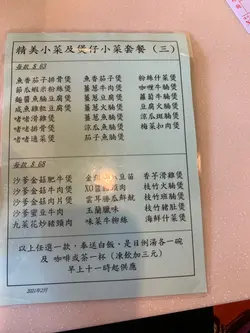 精美小菜及煲仔小菜套餐（三）
每款 $ 63
魚香茄子排骨煲 魚香茄子煲 粉絲什菜煲
節瓜蝦米粉絲煲 薑蔥牛肉煲 咖喱牛腩煲
薑蔥魚腩豆腐煲 薑蔥魚腩煲 蘿蔔牛腩煲
咸魚雞粒豆腐煲 薑蔥豬腰煲 豆腐火腩煲
啫啫滑雞煲 薑蔥 涼瓜火腩煲
啫啫排骨煲 涼瓜排骨煲 梅菜扣肉煲
啫啫通菜煲
每款 $ 68
沙爹金菇肥牛煲 豆苗 香芋滑雞煲
沙爹金菇牛肉煲 XO 肉 枝竹火腩煲
沙爹金菇肉片煲 雲耳勝瓜鮮魷 枝竹牛腩煲
沙爹蜜豆牛肉 玉蘭臘味 枝竹豬肚煲
九菜花炒豬頸肉 味菜牛柳絲 海鮮什菜煲
以上任選一款，奉送白飯，是日例湯各一碗
及 咖啡或茶一杯（凍飲加三元）
早上十一時起供應
2021年2月